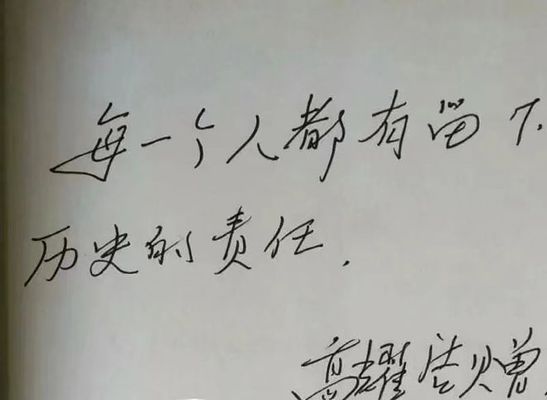 每一个人都有留下
历史的责任.
高耀洁赠